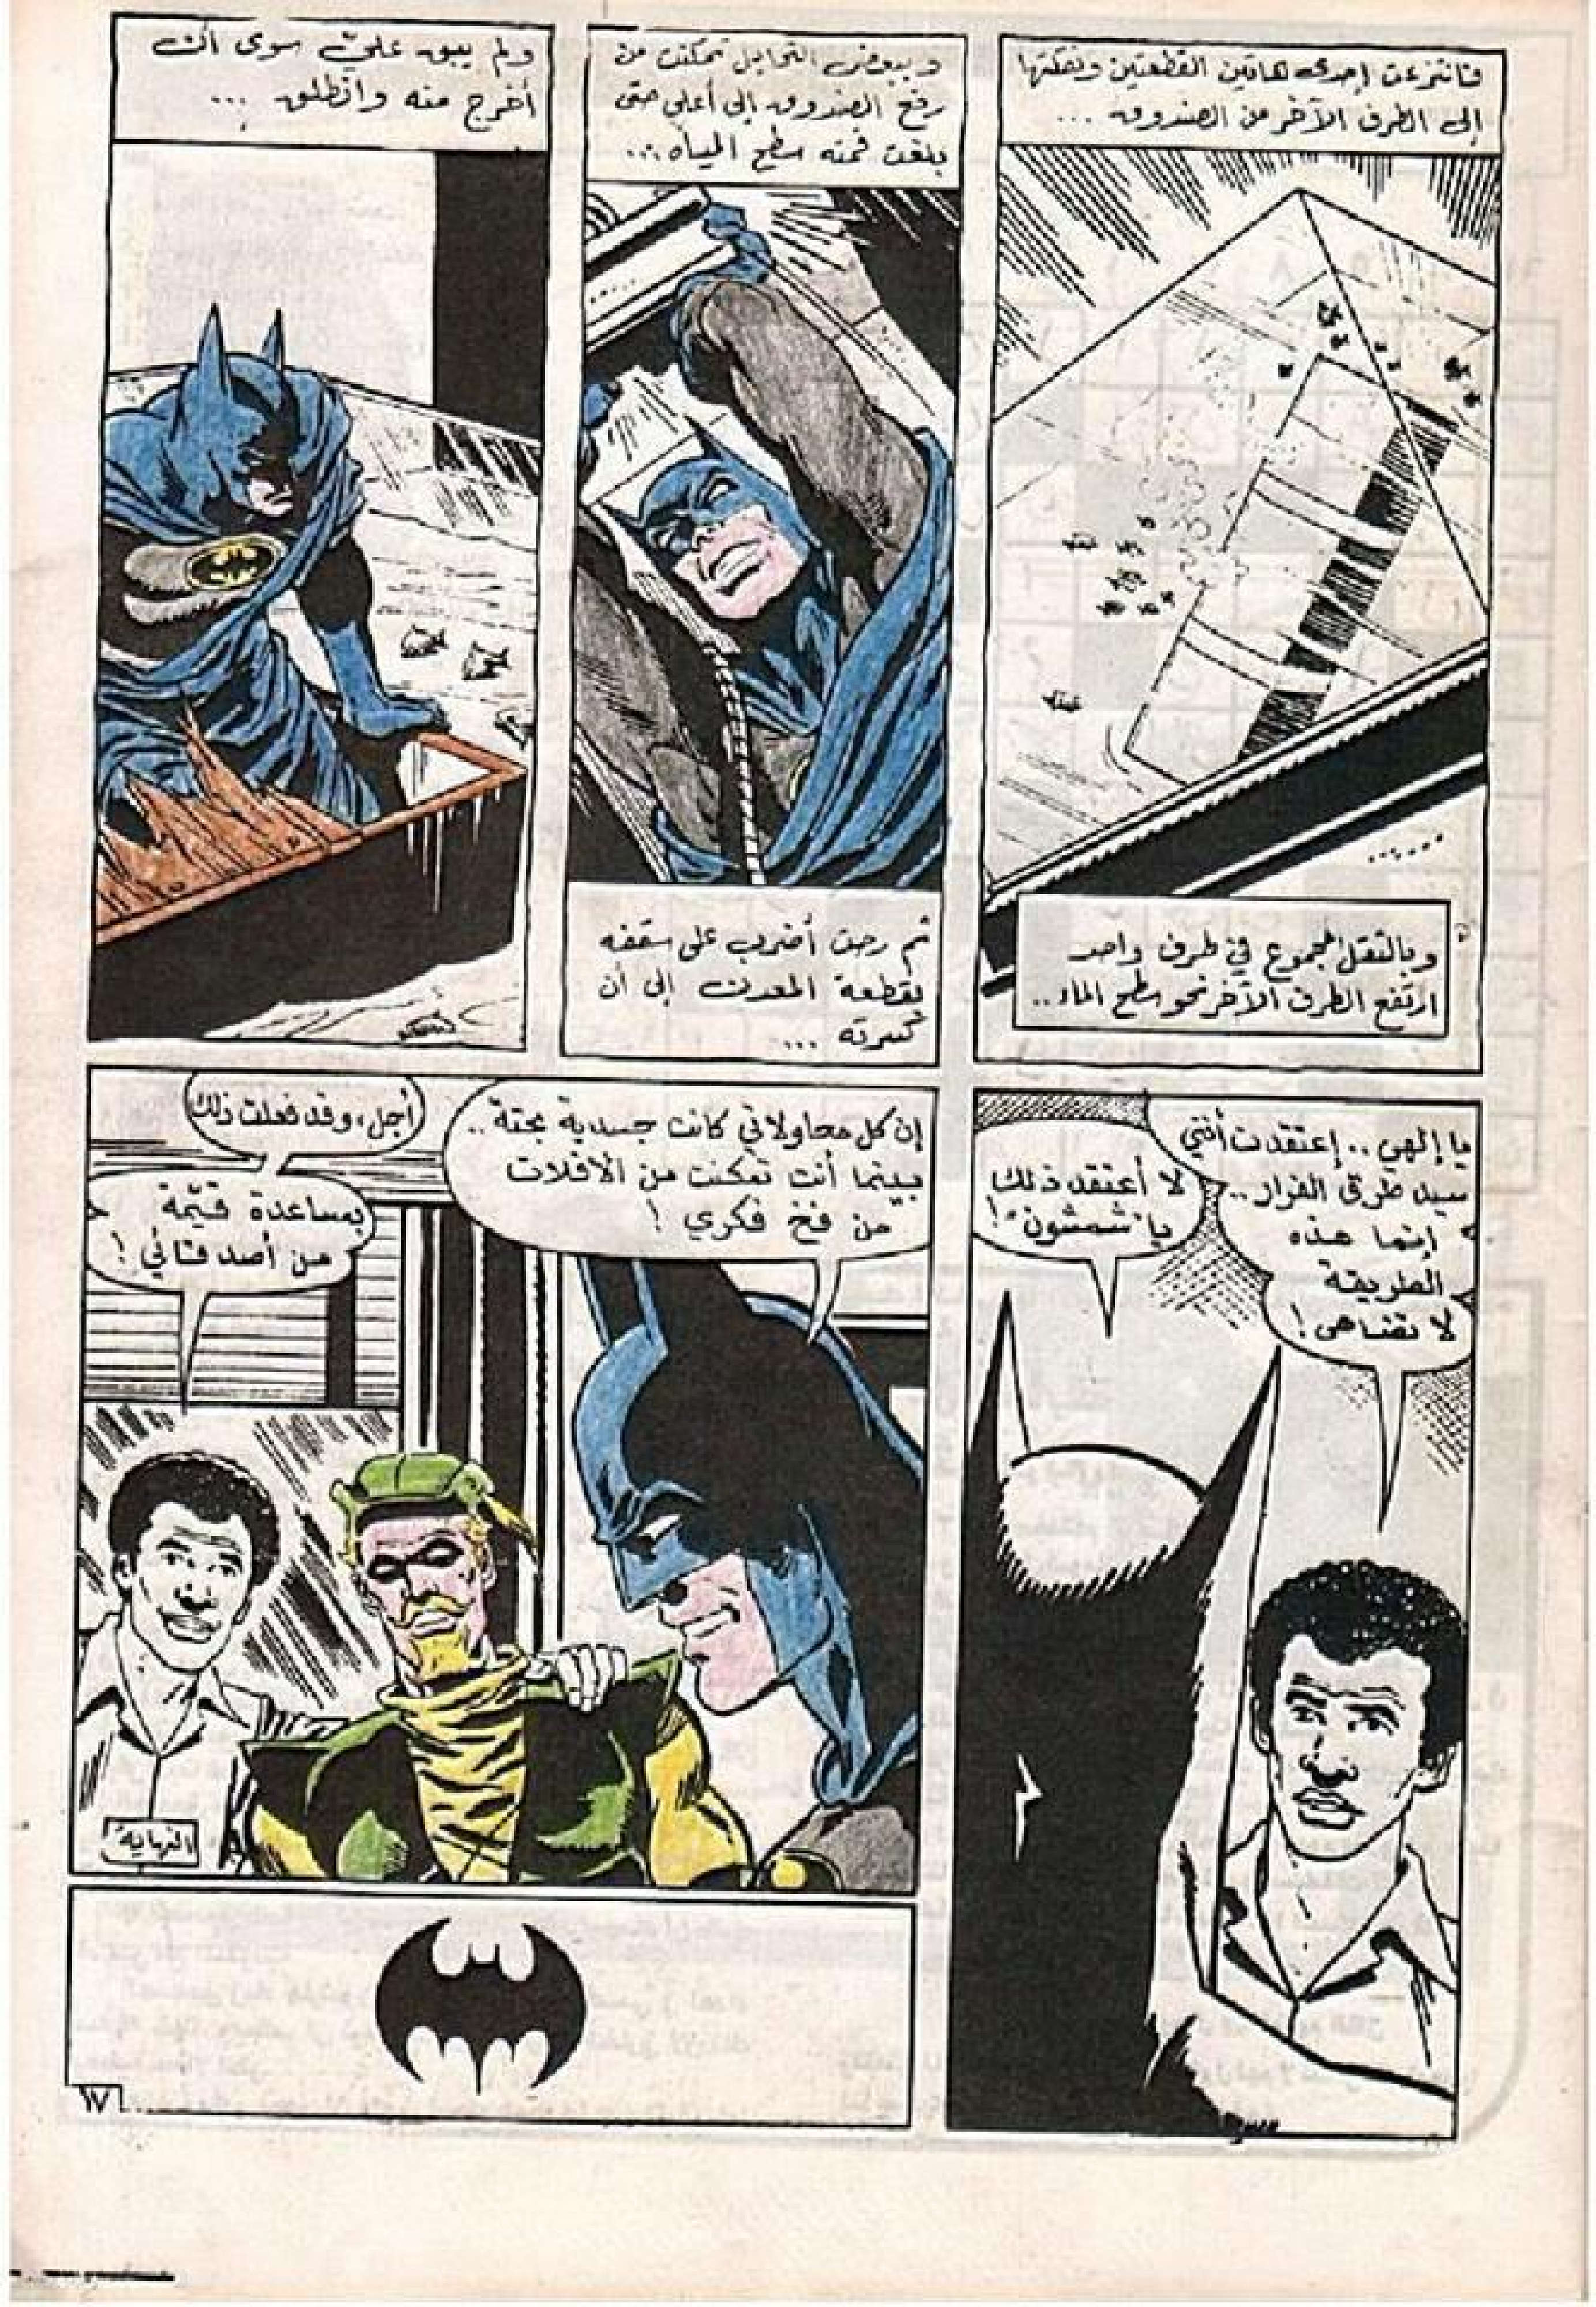 فانتزعت إحدى هاتين القطعتين ونقلتها
إلى الطرف الآخر من الصندوق ...
وبالثقل المجموع في طرف واحد
ارتفع الطرف الآخر نحو سطح الماء ..
وببعض التحايل تمكنت من
رفع الصندوق إلى أعلى حتى
بلغت قمته سطح المياه ...
ثم رحت أضرب على سقفه
بقطعة المعدن إلى أن
كسرته ...
ولم يبق عليّ سوى أن
أخرج منه وانطلق ...
يا إلهي .. إعتقدت أنني
سيد طرق الفرار ..
إنما هذه
الطريقة
لا تضاهى !
لا أعتقد ذلك
يا "شمشون" !
إن كل محاولاتي كانت جسدية بحتة ..
بينما أنت تمكنت من الافلات
من فخ فكري !
أجل، وقد فعلت ذلك
بمساعدة قيّمة
من أصدقائي !
النهاية
١٧